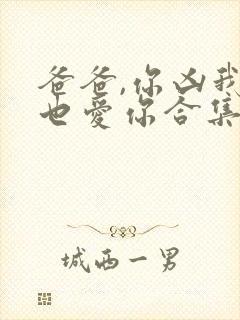 爸爸,你凶我
也爱你合集
城西一男